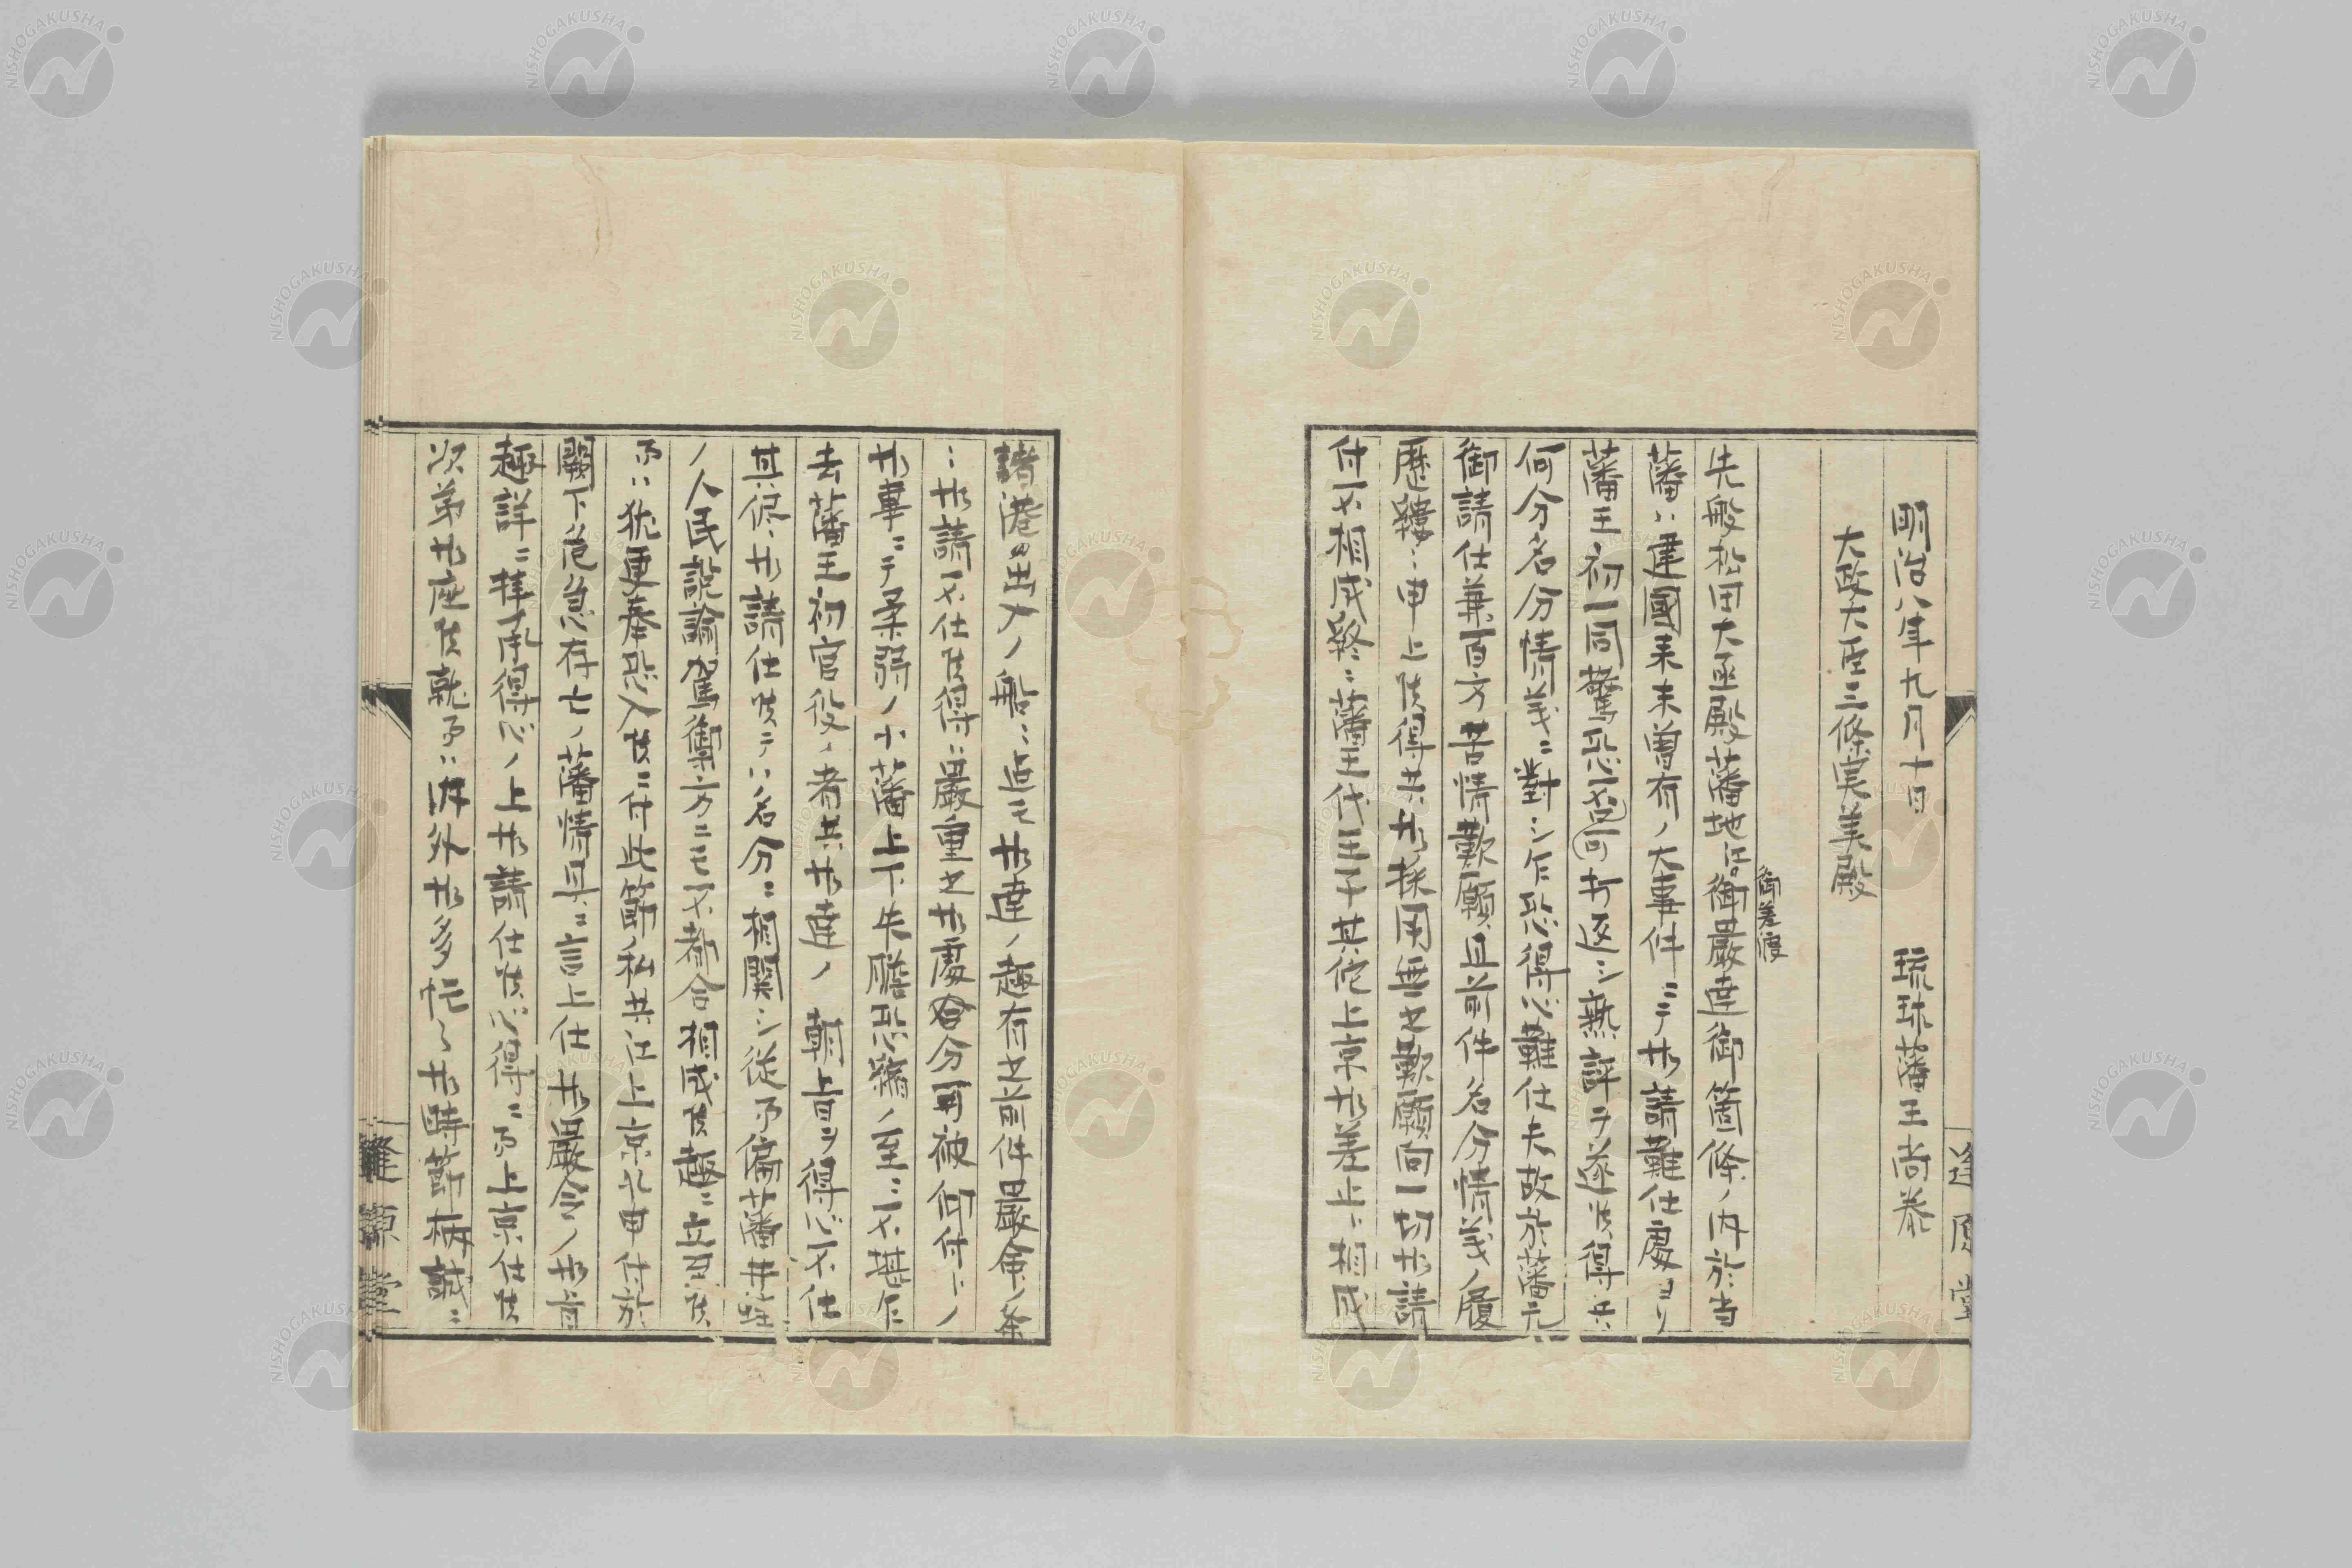 明治八年九月十日 琉球藩王尚泰
大政大臣三條実美殿
御差渡
先般松田大丞殿藩地江御嚴達御箇條ノ内於当
藩ハ建國来未曽有ノ大事件ニテ御請難仕處ヨリ
藩王初一同驚恐不可打返シ熟評ヲ遂候得共
何分名分情義ニ對シ乍恐得心難仕夫故於藩元
御請仕兼百方苦情歎願且前件名分情義ノ履
歴縷々申上候得共御採用無之歎願向一切御請
付不相成終ニ藩王代王子其他上京御差止ニ相成
諸港出入ノ船ニ迄モ御達ノ趣有之前件嚴命ノ条
々御請不仕候得ハ嚴重之御處分可被仰付トノ
御事ニテ柔弱ノ小藩上下失膽恐縮ノ至ニ不堪乍
去藩王初官役ノ者共御達ノ 朝旨ヲ得心不仕
其侭御請仕候テハ名分ニ相関シ従而偏藩無益
ノ人民説諭駕御方ニモ不都合相成候趣ニ立至候
而ハ猶更奉恐入候ニ付此節私共江上京ノ申付於
闕下危急存亡ノ藩情具ニ言上仕御嚴令ノ御旨
趣詳ニ拝承得心ノ上御請仕候心得ニ而上京仕候
次第御座候就而ハ内外御多忙之御時節柄誠ニ
隆原堂